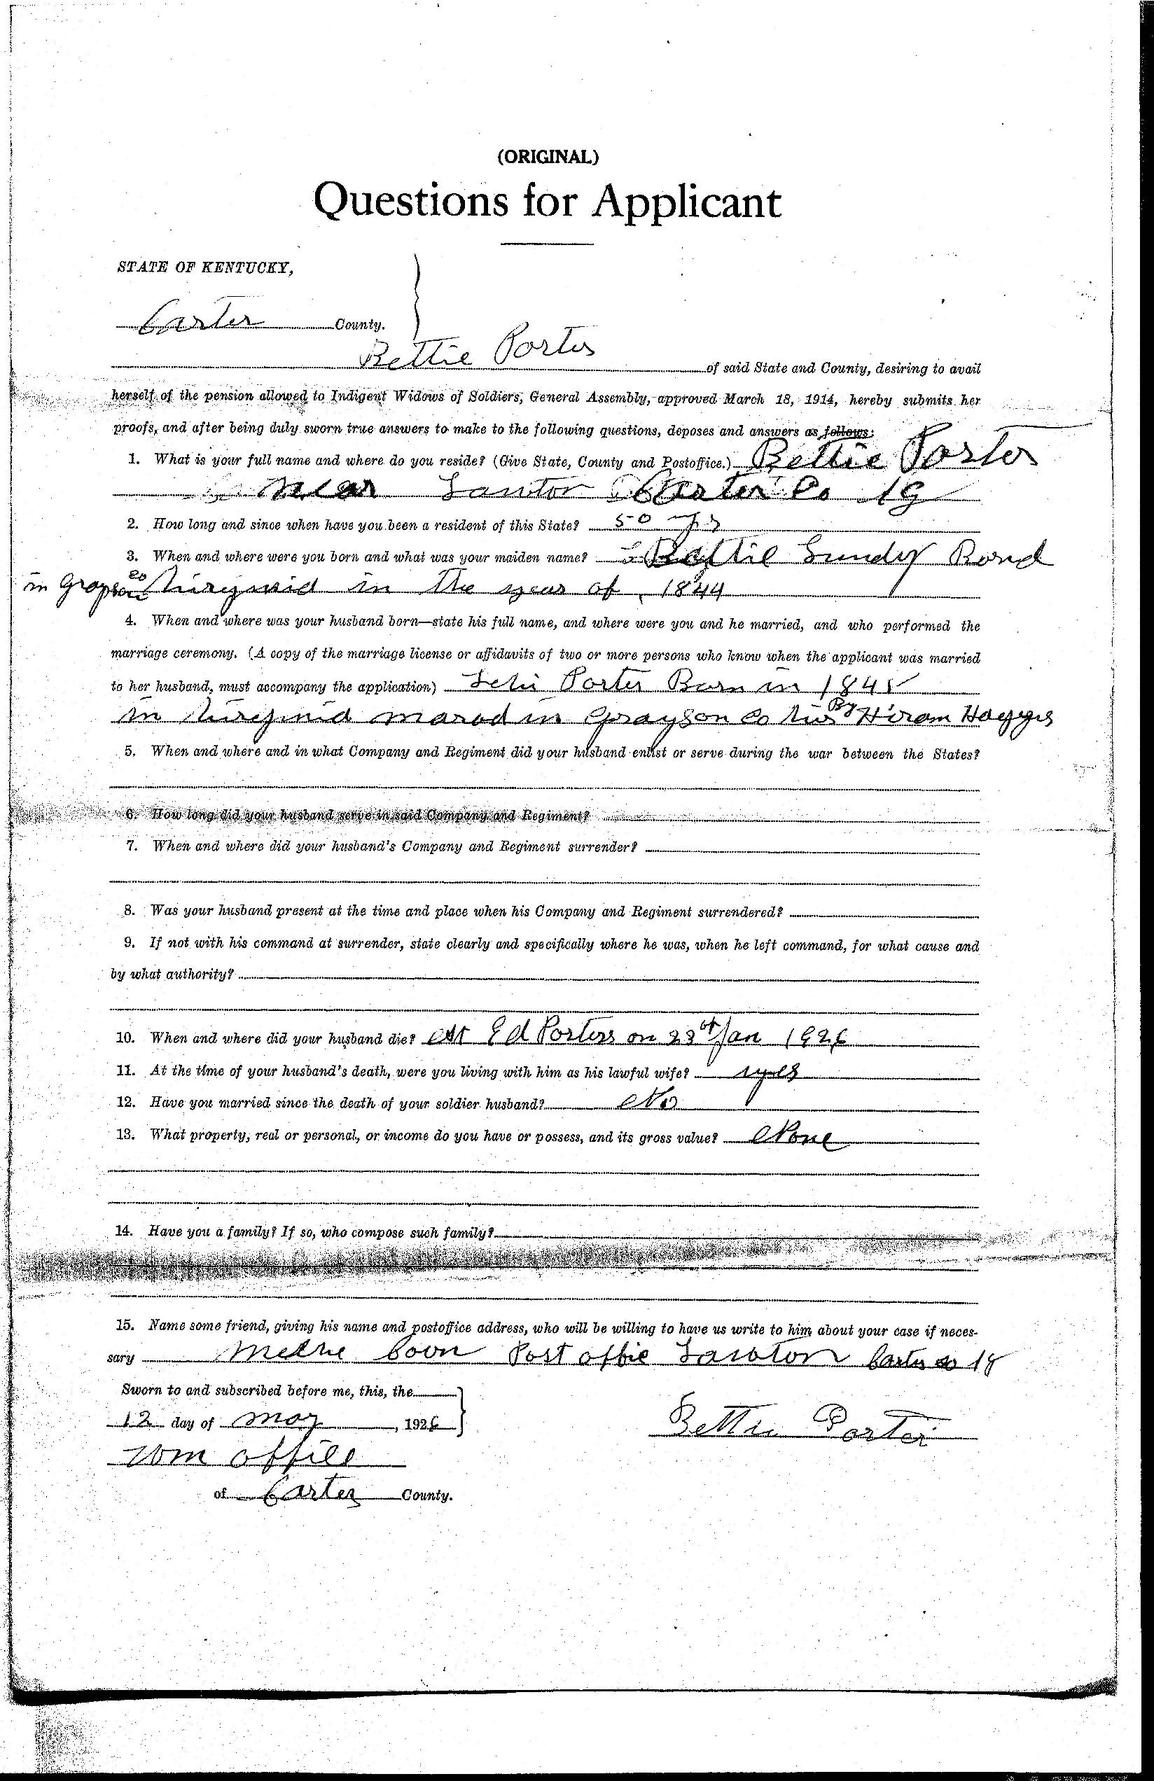 (ORIGINAL)
Questions for Applicant
STATE OF KENTUCKY,
Carter County.
Bettie Porter of said State and County, desiring to avail
herself of the pension allowed to Indigent Widows of Soldiers, General Assembly, approved March 18, 1914, hereby submits her
proofs, and after being duly sworn true answers to make to the following questions, deposes and answers as follows:
1. What is your full name and where do you reside? (Give State, County and Postoffice.) Bettie Porter
near Lawton Carter Co
2. How long and since when have you been a resident of this State? 50 yrs
3. When and where were you born and what was your maiden name? Bettie Bond
in Grayson co in the year of 1844
4. When and where was your husband born—state his full name, and where were you and he married, and who performed the
marriage ceremony. (A copy of the marriage license or affidavits of two or more persons who know when the applicant was married
to her husband, must accompany the application) Porter Born in 1845
in marod in Grayson Co By Hiram
5. When and where and in what Company and Regiment did your husband enlist or serve during the war between the States?
6. How long did your husband serve in said Company and Regiment?
7. When and where did your husband's Company and Regiment surrender?
8. Was your husband present at the time and place when his Company and Regiment surrendered?
9. If not with his command at surrender, state clearly and specifically where he was, when he left command, for what cause and
by what authority?
10. When and where did your husband die? At Ed Porters on Jan 1926
11. At the time of your husband's death, were you living with him as his lawful wife? yes
12. Have you married since the death of your soldier husband? No
13. What property, real or personal, or income do you have or possess, and its gross value? None
14. Have you a family? If so, who compose such family?
15. Name some friend, giving his name and postoffice address, who will be willing to have us write to him about your case if neces-
sary Post Lawton Carter co
Sworn to and subscribed before me, this, the
12 day of may, 1926
Bettie Porter
Wm
of Carter County.